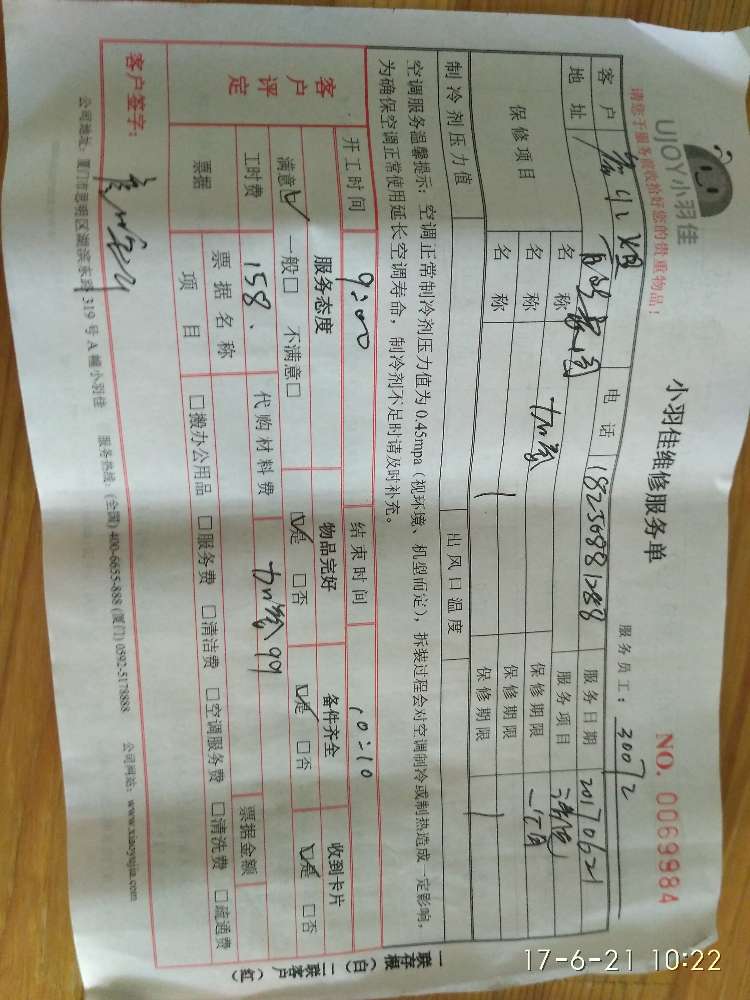 UJOY小羽佳
请您于服务前收拾好您的贵重物品！
小羽佳维修服务单
NO. 0069984
服务员工： 30072
客户 电话 18256881288 服务日期 20170621
地址 服务项目
保修项目 名称 加氨 保修期限 一个月
名称 保修期限
名称 保修期限
制冷剂压力值 出风口温度
空调服务温馨提示：空调正常制冷剂压力值为0.45mpa（视环境、机型而定），拆装过程会对空调制冷或制热造成一定影响，
为确保空调正常使用延长空调寿命，制冷剂不足时请及时补充。
开工时间 9:00 结束时间 10:10
客户评定 服务态度 物品完好 备件齐全 收到卡片
满意☑ 一般□ 不满意□ ☑是 □否 ☑是 □否 ☑是 □否
工时费 158. 代购材料费 加氨99
票据 票据名称 票据金额
项目 □搬办公用品 □服务费 □清洁费 □空调服务费 □清洗费 □疏通费
客户签字：
公司地址：厦门市思明区湖滨东路319号A幢小羽佳 服务热线：(全国) 400-6655-888 (厦门) 0592-5178888 公司网站：www.xiaoyujia.com
一联存根（白）二联客户（红）
17-6-21 10:22